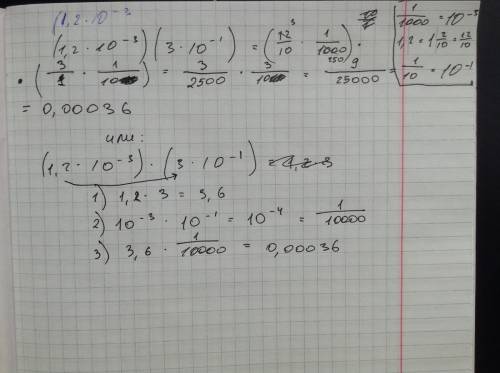 (1,2 · 10⁻³
(1,2 · 10⁻³)(3 · 10⁻¹) = (12/10 · 1/1000) ·
3
250
· (3/1 · 1/10) = 3/2500 · 3/10 = 9/25000 =
= 0,00036
1/1000 = 10⁻³
1,2 = 1 2/10 = 12/10
1/10 = 10⁻¹
или:
(1,2 · 10⁻³) · (3 · 10⁻¹)
1) 1,2 · 3 = 3,6
2) 10⁻³ · 10⁻¹ = 10⁻⁴ = 1/10000
3) 3,6 · 1/10000 = 0,00036